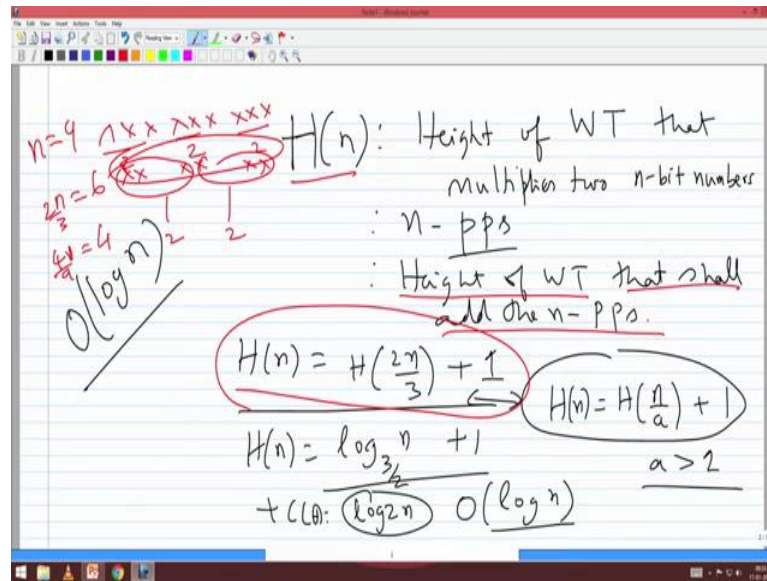 Note1 - Windows Journal
File Edit View Insert Actions Tools Help
B
n=9 xxx xxx xxx
2n/3 = 6 xx xx xx
2 2 2
4n/9 = 4 2 2
O(log n)
H(n): Height of WT that
multiplies two n-bit numbers
: n - pps
: Height of WT that shall
add the n - pps.
H(n) = H(2n/3) + 1
H(n) = H(n/a) + 1
a > 1
H(n) = log_{3/2} n + 1
+ CLA: log2n O(log n)